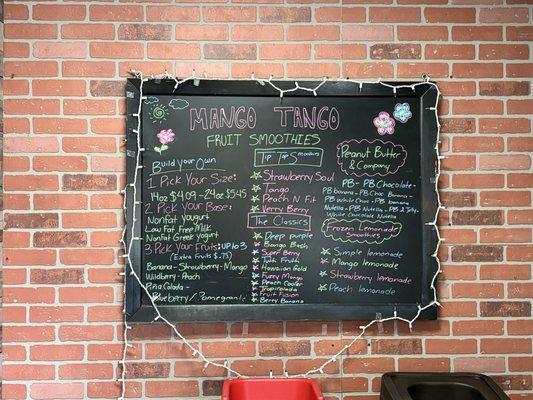 MANGO TANGO
FRUIT SMOOTHIES
Build your Own
1 Pick Your Size:
14oz $4.09 - 24oz $5.45
2 Pick your Base:
Nonfat yogurt
Low Fat Free Milk
Nonfat Greek yogurt
3 Pick Your Fruits: UP to 3
(Extra Fruits $.75)
Banana - Strawberry - Mango
Wildberry - Peach
Pina Colada -
Blueberry / Pomegranate
Tip Top Smoothies
Strawberry Soul
Tango
Peach N Fit
Verry Berry
The Classics
Deep purple
Bongo Bash
Super Berry
Tutti Frutti
Hawaiian Gold
Fuzzy Mango
Peach Cooler
Tropicolada
Fruit Fusion
Berry Banana
Peanut Butter
& Company
PB - PB Chocolate
PB banana - PB Choc Banana
PB White Choc - PB Nutella
Nutella - PB Nutella - PB & Jelly
White Chocolate Nutella
Frozen Lemonade
Smoothies
Simple lemonade
Mango lemonade
Strawberry lemonade
Peach lemonade